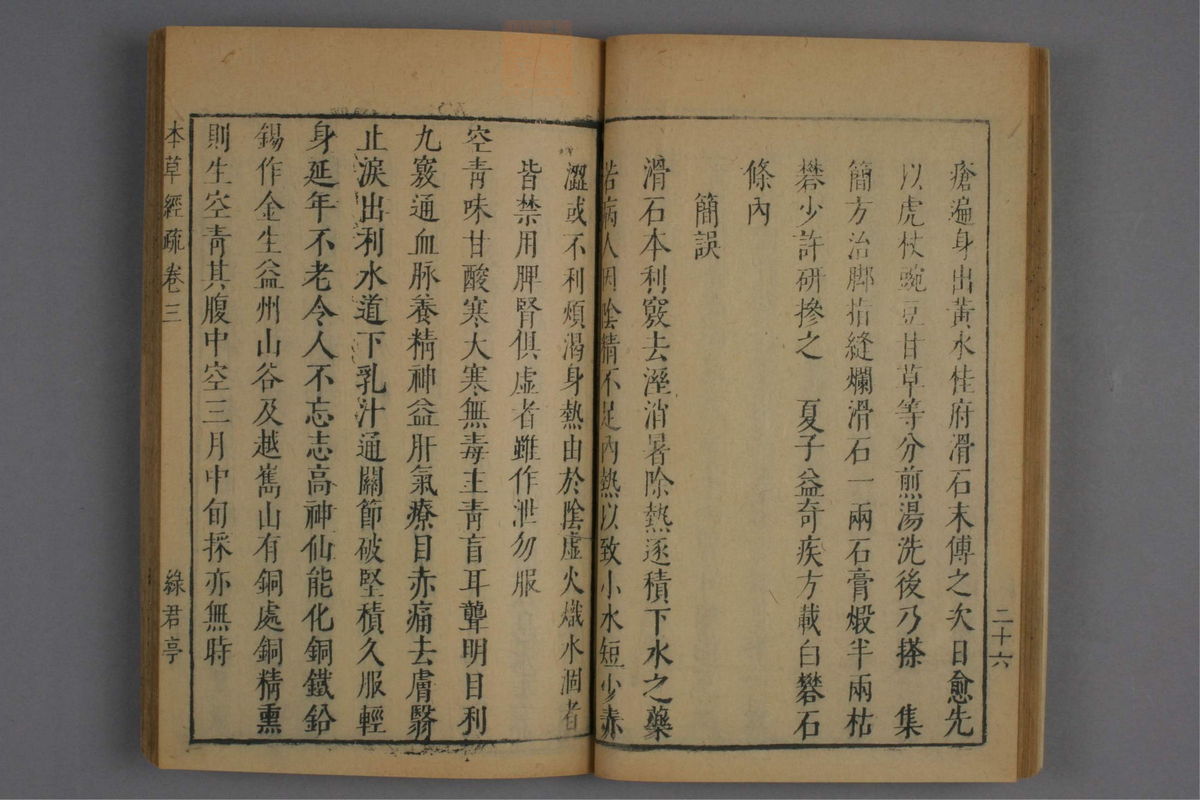 瘡遍身出黃水桂府滑石末傅之次日愈先
以虎杖豌豆甘草等分煎湯洗後乃搽　集
簡方治脚指縫爛滑石一兩石膏煅半兩枯
礬少許研摻之　夏子益奇疾方載白礬石
條內
簡誤
滑石本利竅去溼消暑除熱逐積下水之藥
若病人因陰精不足內熱以致小水短少赤
澀或不利煩渴身熱由於陰虛火熾水涸者
皆禁用脾腎俱虛者雖作泄勿服
空青味甘酸寒大寒無毒主青盲耳聾明目利
九竅通血脉養精神益肝氣療目赤痛去膚翳
止淚出利水道下乳汁通關節破堅積久服輕
身延年不老令人不忘志高神仙能化銅鐵鉛
錫作金生益州山谷及越嶲山有銅處銅精熏
則生空青其腹中空三月中旬採亦無時
二十六
本草經疏卷三
綠君亭